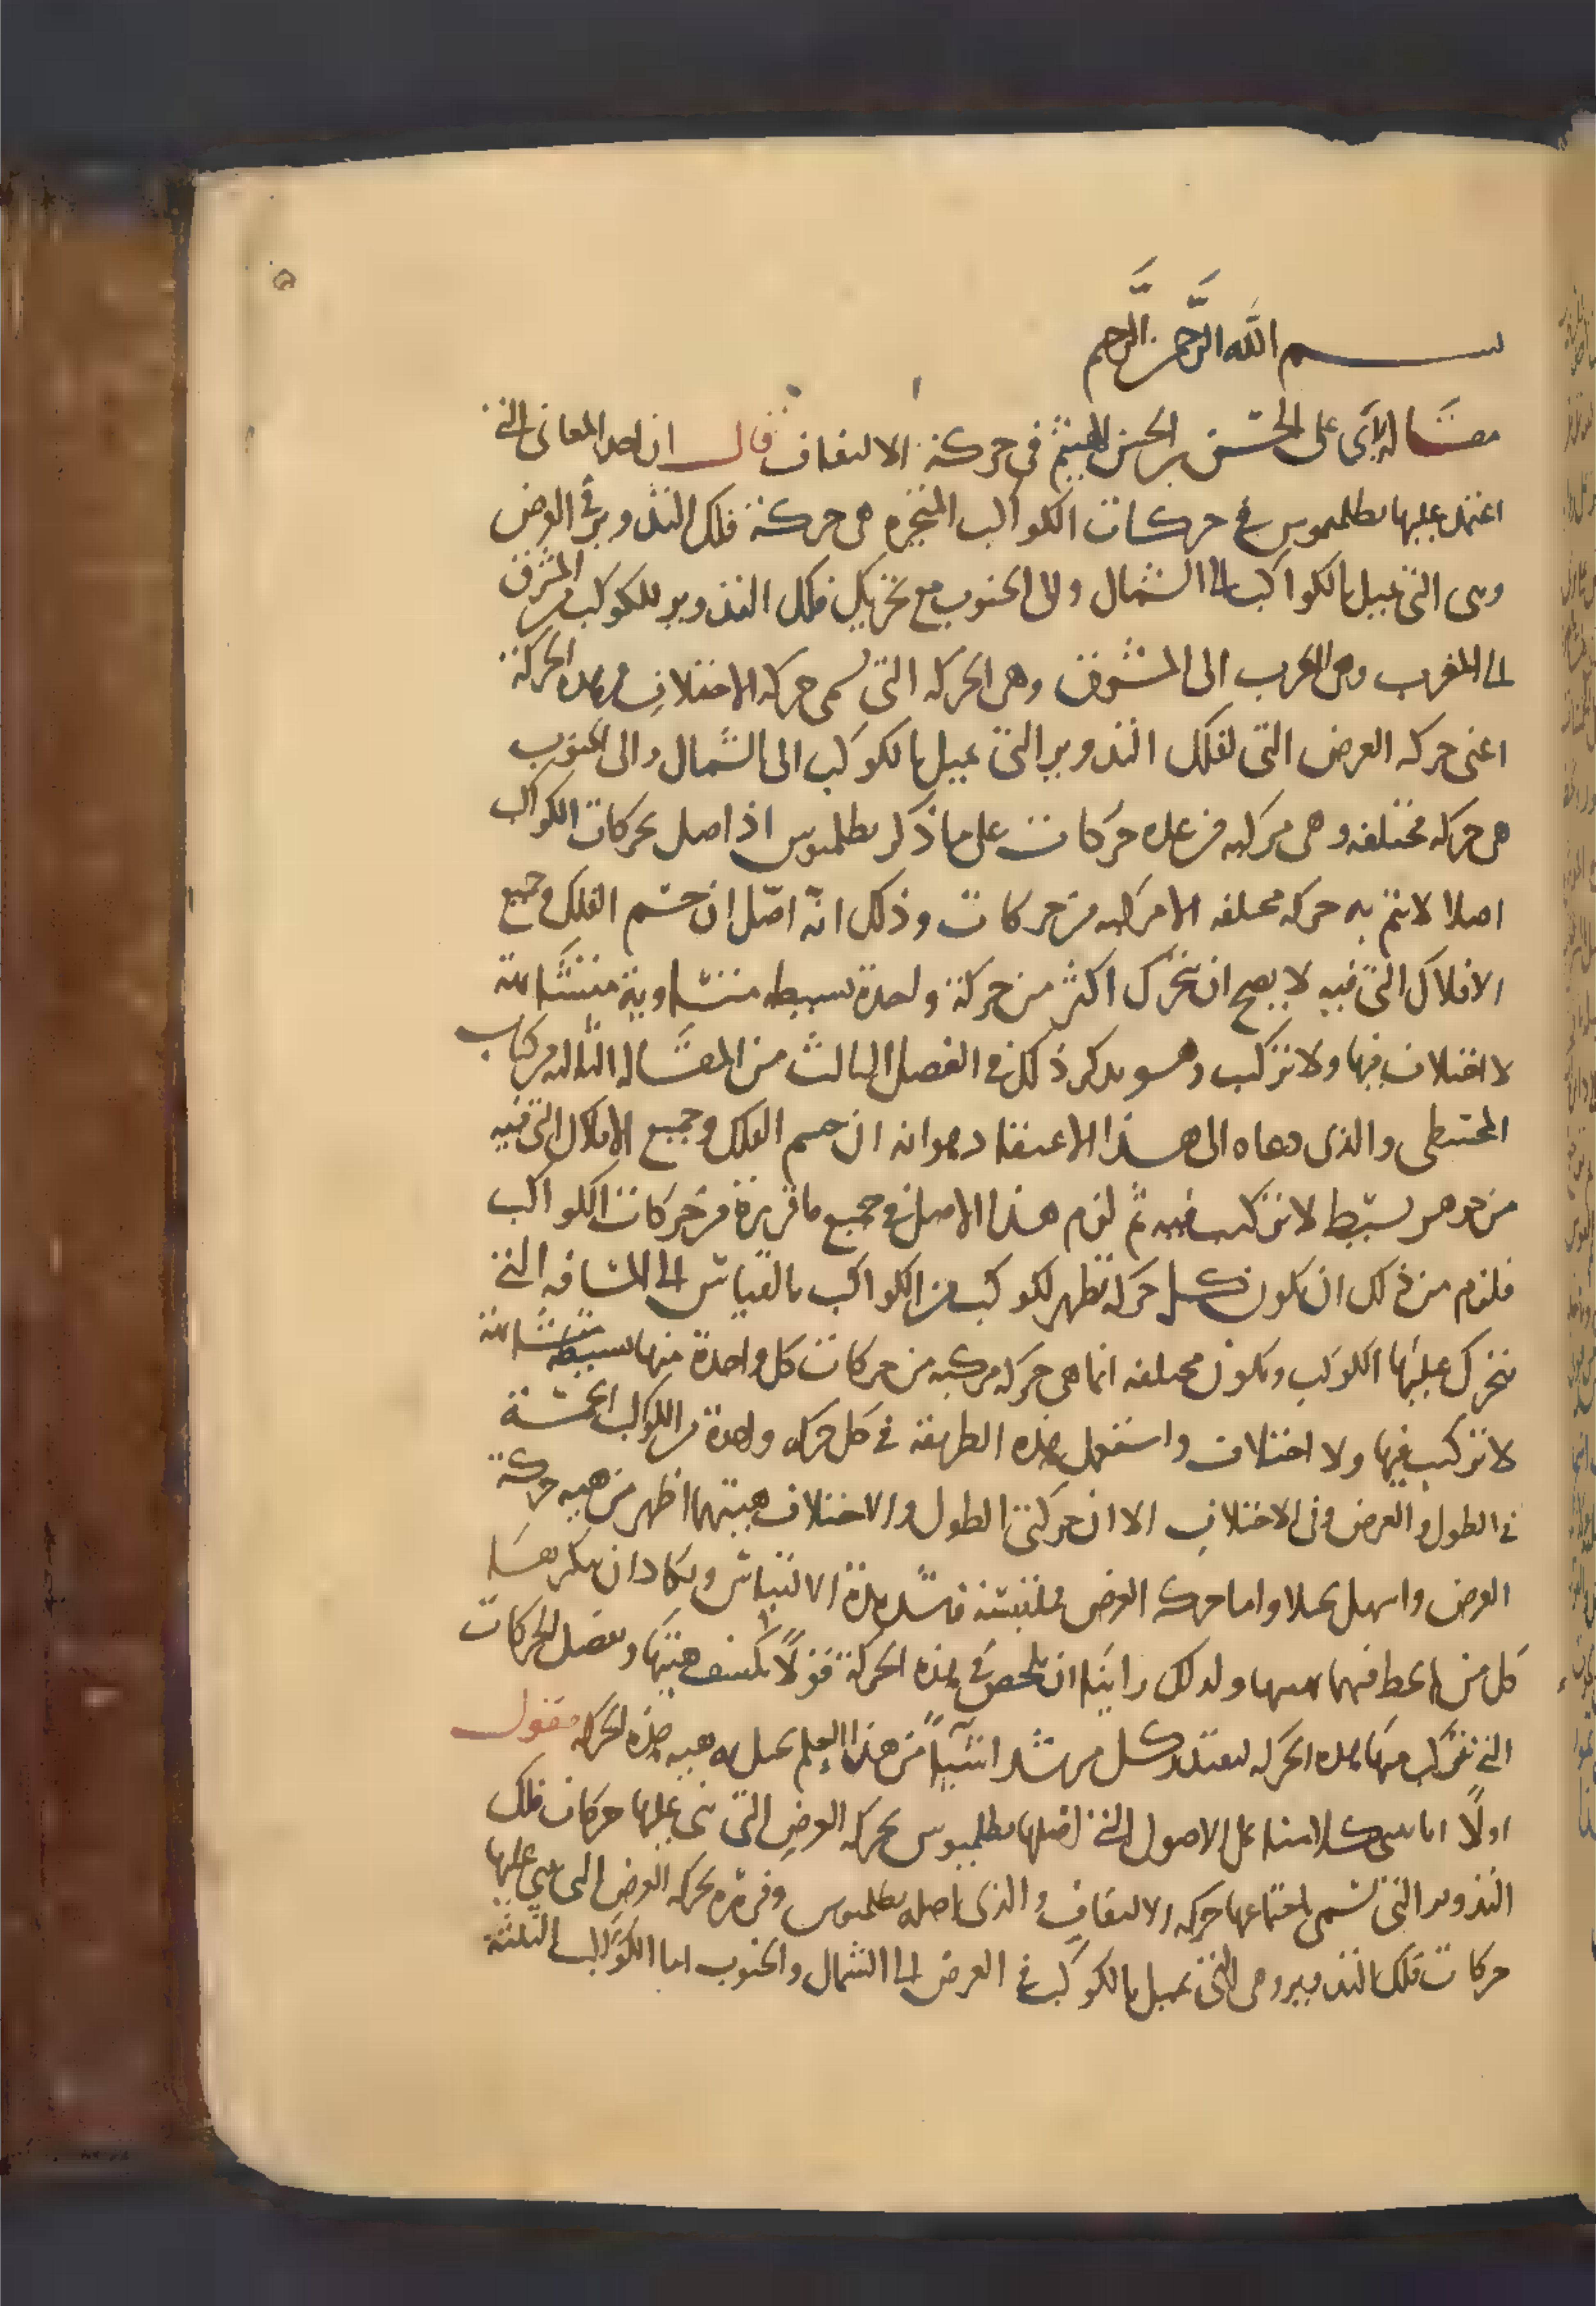 بسم الله الرحمن الرحيم
مقالة لابي علي الحسن بن الحسن الهيثم في حركة الالتفاف قال ان احد المعاني التي
اعتمد عليها بطلميوس في حركات الكواكب المتحيره هي حركة فلك التدوير في العرض
وهي التي تميل بالكواكب الى الشمال والى الجنوب مع تحريك فلك التدوير للكوكب من المشرق
الى المغرب ومن المغرب الى المشرق وهي الحركه التي تسمى حركة الاختلاف وهذه الحركة
اعني حركه العرض التي لفلك التدوير التي تميل بالكوكب الى الشمال والى الجنوب
هي حركه مختلفه وهي مركبه من عده حركات على ما ذكر بطلميوس اذ اصل لحركات الكواكب
اصلا لا تتم به حركه مختلفه الا مركبه من حركات وذلك انه اصل ان جسم الفلك وجميع
الافلاك التي فيه لا يصح ان تتحرك اكثر من حركة واحدة بسيطه متساوية متشابهة
لا اختلاف فيها ولا تركب وهو يذكر ذلك في الفصل الثالث من المقالة الثالثه من كتاب
المجسطي والذي دعاه الى هذا الاعتقاد هو انه ان جسم الفلك وجميع الافلاك التي فيه
من جوهر بسيط لا تركب فيه ثم لزم هذا الاصل في جميع ما قرره من حركات الكواكب
فلزم من ذلك ان يكون كل حركه تظهر لكوكب من الكواكب بالقياس الى المسافه التي
يتحرك عليها الكوكب وتكون مختلفه انما هي حركه مركبه من حركات كل واحدة منها بسيطة متشابهة
لا تركيب فيها ولا اختلاف واستعمل هذه الطريقة في كل حركه واحدة من الكواكب الخمسة
في الطول والعرض وفي الاختلاف الا ان حركتي الطول والاختلاف هيئتهما اظهر من هيئه حركة
العرض واسهل تخيلا واما حركه العرض فملتبسة شديدة الالتباس ويكاد ان ينكرها
كل من لم يحط فهما بهيئتها ولذلك راينا ان نلخص في هذه الحركة قولا يكشف هيئتها ويفصل الحركات
التي تتركب منها هذه الحركه ليقتدر كل من شدا شيئا من هذا العلم تخيل هيئه هذه الحركه فنقول
اولا انا نبني كلامنا على الاصول التي اصلها بطلميوس لحركه العرض التي بنى عليها حركات فلك
التدوير التي تسمى باجتماعها حركه الالتفاف والذي اصله بطلميوس وقرره لحركه العرض التي بنى عليها
حركات فلك التدوير وهي التي تميل بالكوكب في العرض الى الشمال والجنوب اما الكواكب الثلثة